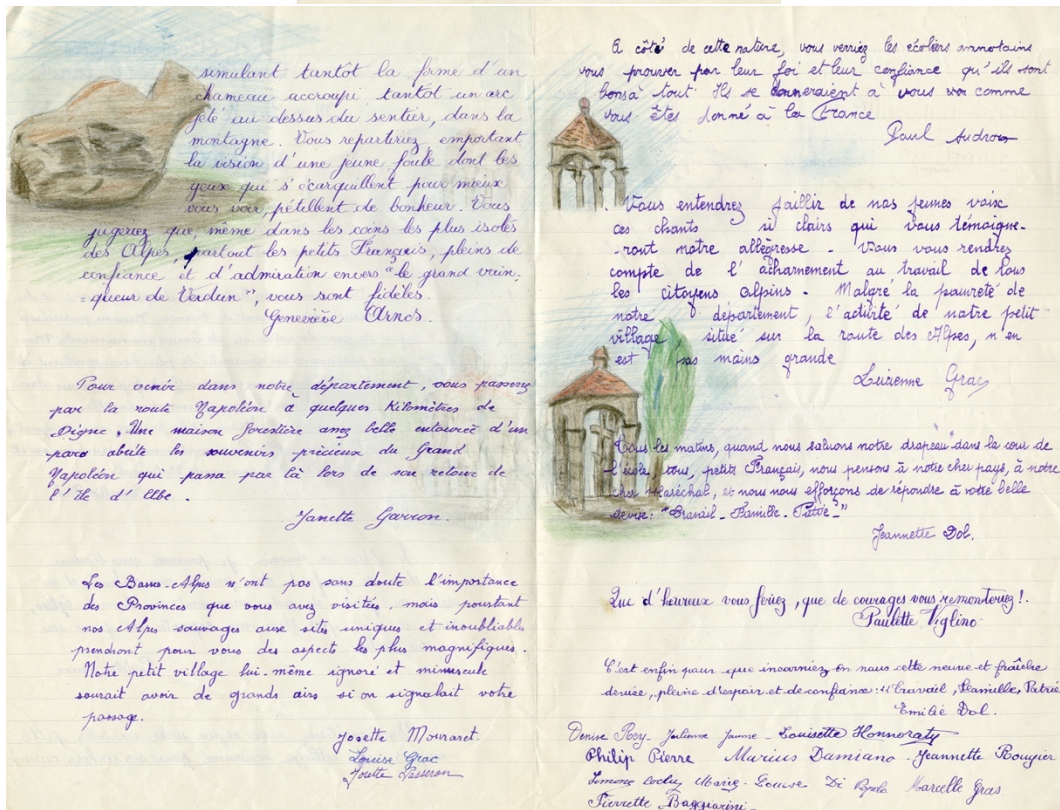 simulant tantôt la forme d'un
chameau accroupi, tantôt un arc
jeté au dessus du sentier, dans la
montagne. Vous repartiriez, emportant
la vision d'une jeune foule dont les
yeux qui s'écarquillent pour mieux
vous voir, pétillent de bonheur. Vous
jugeriez que, même dans les coins les plus isolés
des Alpes, partout les petits Français, pleins de
confiance et d'admiration envers "le grand vain-
-queur de Verdun", vous sont fidèles.
Geneviève Arnos.
Pour venir dans notre département, vous passerez
par la route Napoléon à quelques Kilomètres de
Digne. Une maison forestière assez belle entourée d'un
parc abrite les souvenirs précieux du Grand
Napoléon qui passa par là lors de son retour de
l'île d'Elbe.
Janette Garron.
Les Basses-Alpes n'ont pas sans doute l'importance
des Provinces que vous avez visitées, mais pourtant
nos Alpes sauvages aux sites uniques et inoubliables
prendront pour vous des aspects les plus magnifiques.
Notre petit village lui-même ignoré et minuscule
saurait avoir de grands airs si on signalait votre
passage.
Josette Mouraret.
Louise Grac
Josette
A côté de cette nature, vous verriez les écoliers annotains
vous prouver par leur foi et leur confiance qu'ils sont
bons à tout. Ils se donneraient à vous comme
vous êtes donné à la France
Paul
Vous entendrez jaillir de nos jeunes voix
ces chants si clairs qui vous témoigne-
-ront notre allégresse - Vous vous rendrez
compte de l'acharnement au travail de tous
les citoyens Alpins - Malgré la pauvreté de
notre département, l'activité de notre petit
village situé sur la route des Alpes, n'en
est pas moins grande
Luzienne Grac
Tous les matins, quand nous saluons notre drapeau dans la cour de
l'école, tous, petits Français, nous pensons à notre cher pays, à notre
cher Maréchal, et nous nous efforçons de répondre à notre belle
devise: "Travail - Famille - Patrie -"
Jeannette Dol.
Que d'heureux vous feriez, que de courages vous remonteriez!.
Paulette Viglino-
C'est enfin pour que incarniez en nous cette neuve et fraîche
devise, pleine d'espoir et de confiance: "Travail, Famille, Patrie
Emilie Dol.
Denise Rey - Julienne Jaume - Louisette Honnoraty
Philip Pierre Marius Damiano - Jeannette Rougier
Simone Marie-Louise Di Marcelle Gras
Pierrette Baggiarini -